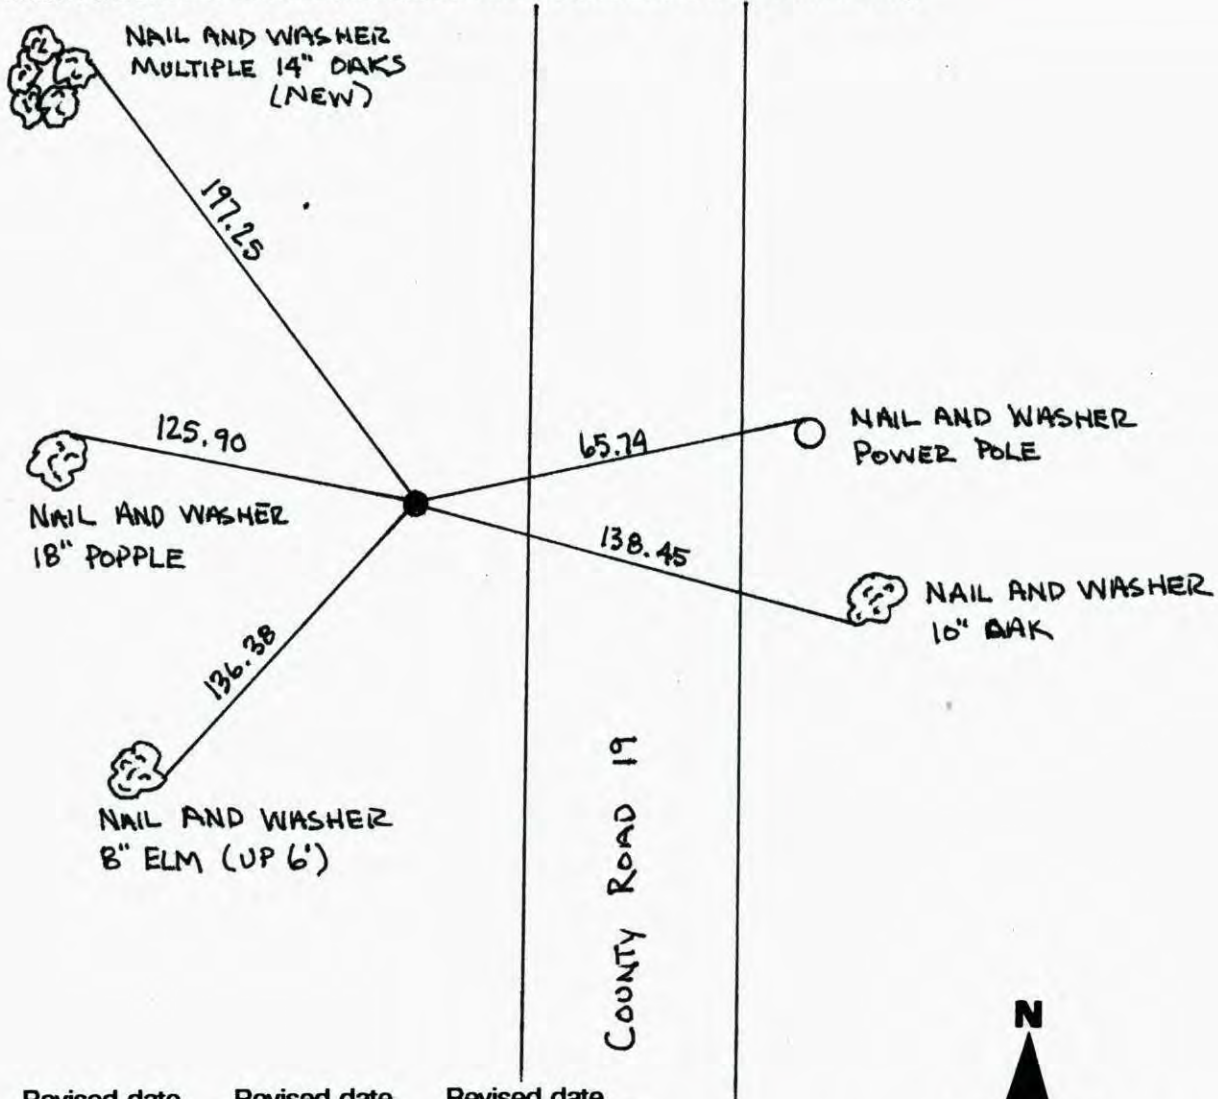 NAIL AND WASHER
MULTIPLE 14" OAKS
(NEW)
197.25
125.90
NAIL AND WASHER
18" POPPLE
65.74
NAIL AND WASHER
POWER POLE
138.45
NAIL AND WASHER
10" OAK
136.38
NAIL AND WASHER
8" ELM (UP 6')
COUNTY ROAD 19
N
Revised date Revised date Revised date